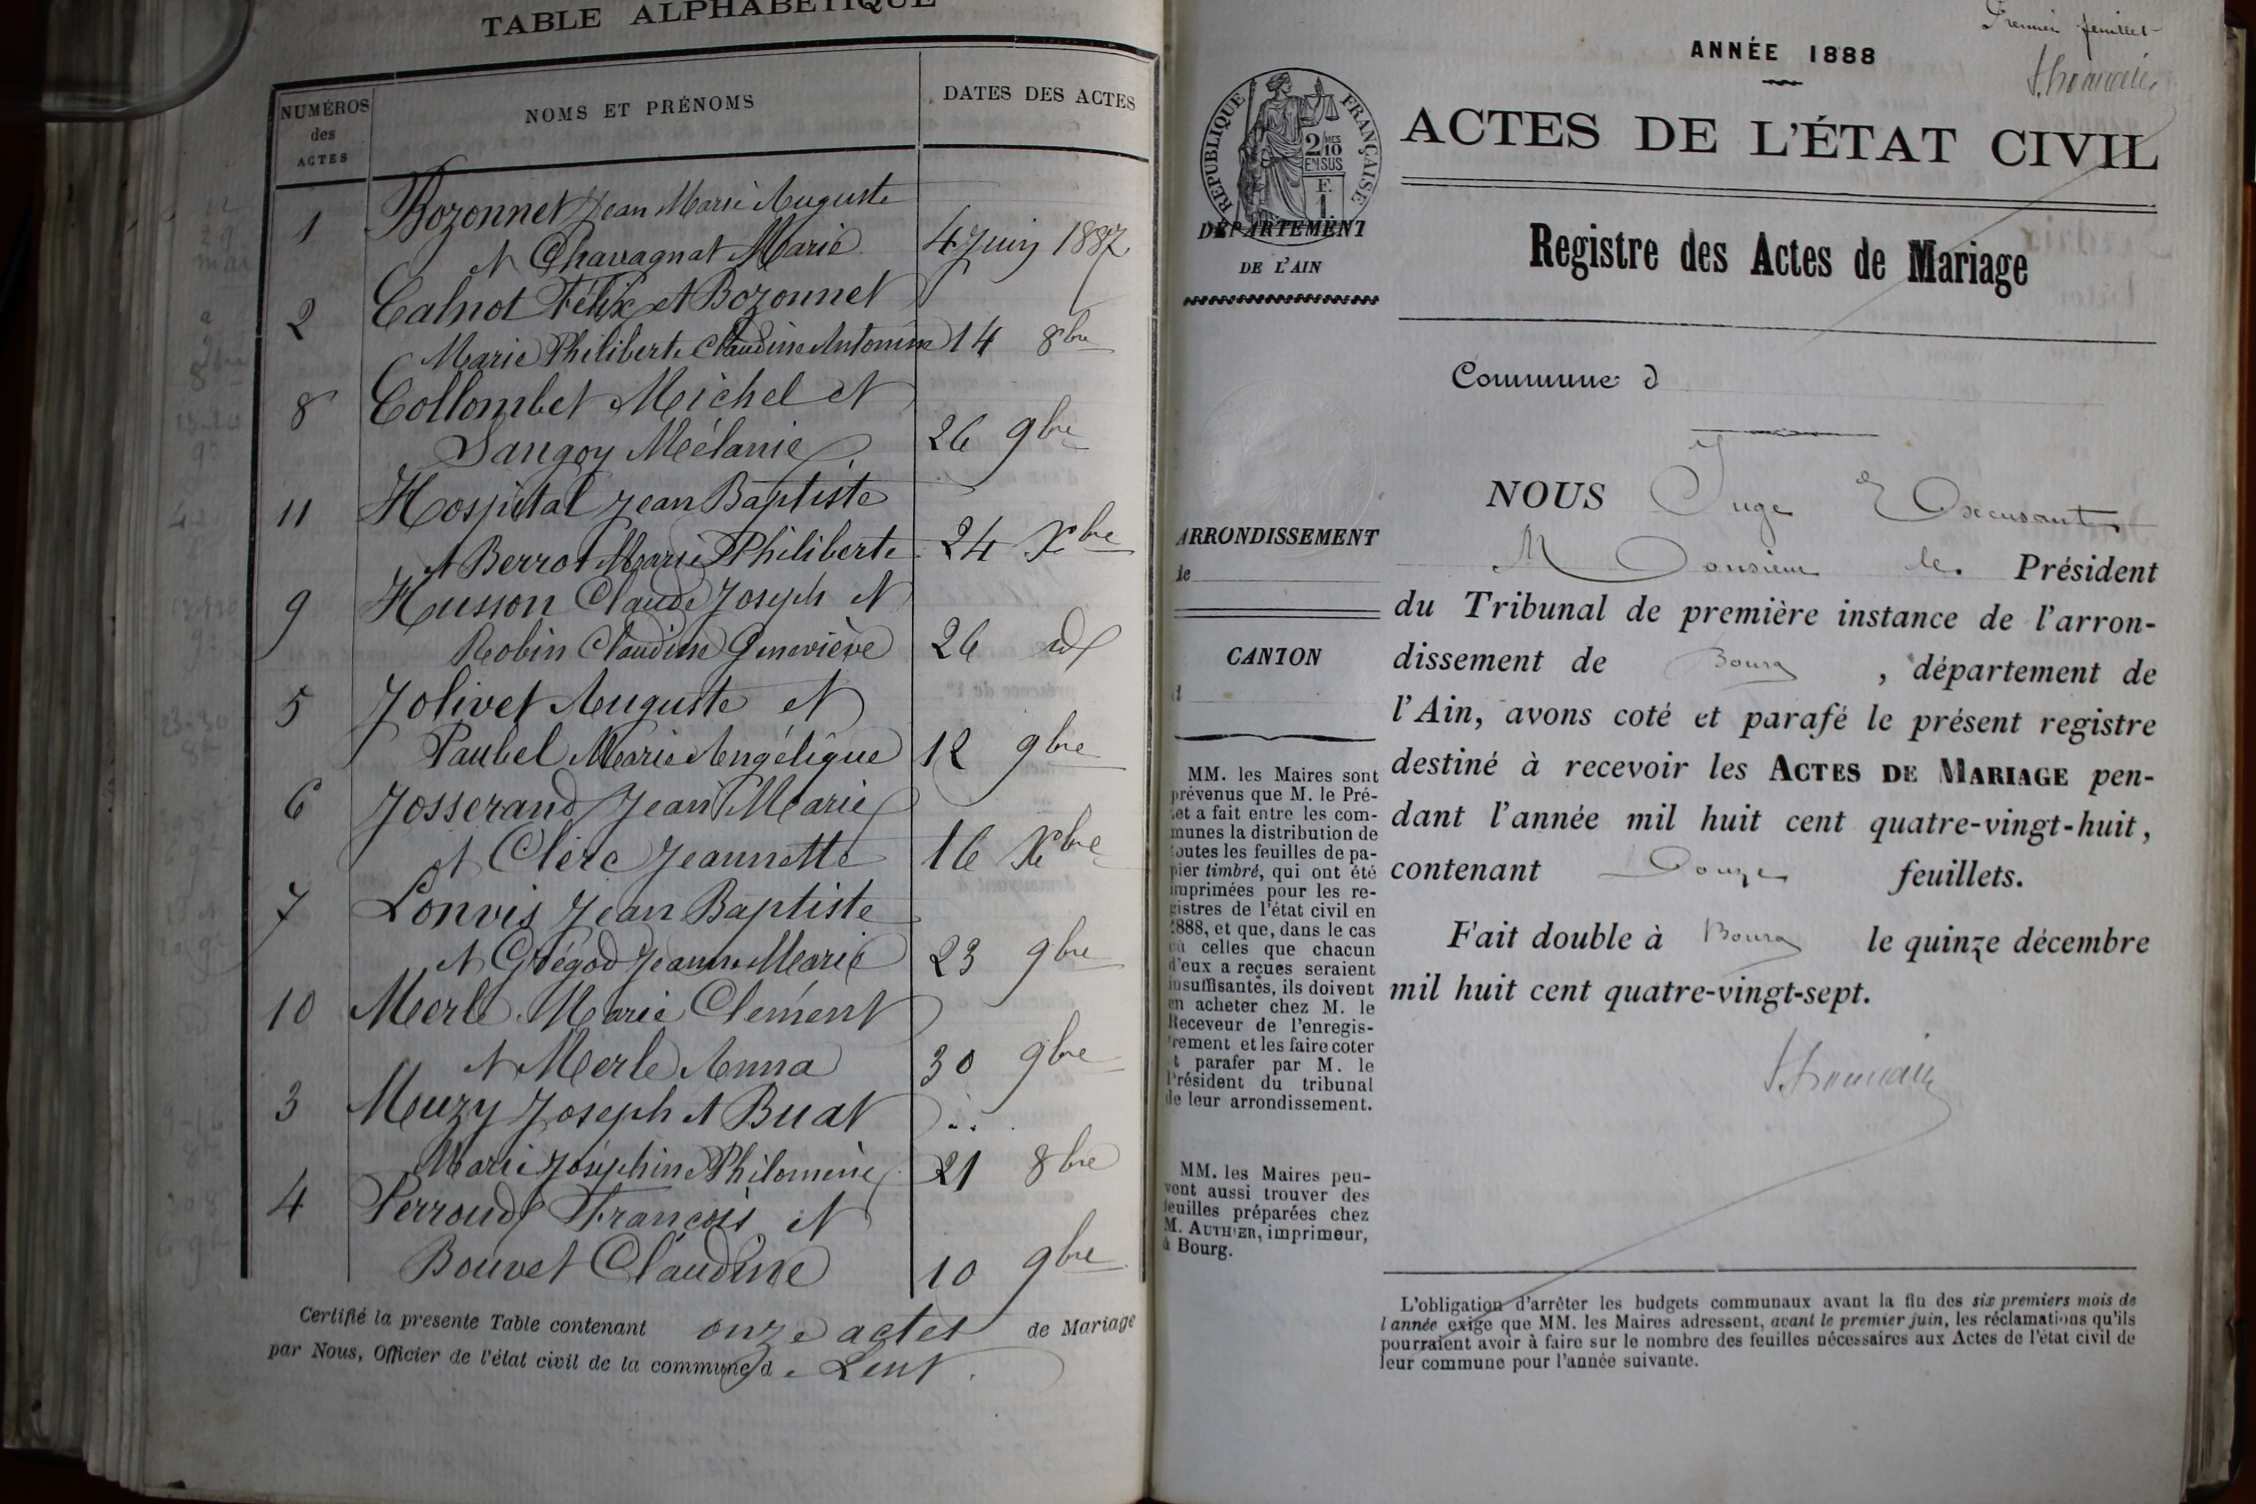 TABLE ALPHABÉTIQUE
NUMÉROS des ACTES
NOMS ET PRÉNOMS
DATES DES ACTES
1 Bozonnet Jean Marie Auguste
et Chavagnat Marie 4 Juin 1887
2 Calnot Félix et Bozonnet
Marie Philiberte Claudine Antonine 14 8bre
8 Collombet Michel et
Saugoy Mélanie 26 9bre
11 Hospital Jean Baptiste
et Berrot Marie Philiberte 24 Xbre
9 Husson Claude Joseph et
Robin Claudine Geneviève 26 9
5 Jolivet Auguste et
Paubel Marie Angélique 12 9bre
6 Josserand Jean Marie
et Clerc Jeannette 16 Xbre
7 Lonvis Jean Baptiste
et Grégod Jeanne Marie 23 9bre
10 Merle Marie Clément
et Merle Anna 30 9bre
3 Meuzy Joseph et Buat
Marie Joséphine Philomène 21 8bre
4 Perroud François et
Bouvet Claudine 10 9bre
Certifié la presente Table contenant onze actes de Mariage
par Nous, Officier de l'état civil de la commune d e Lent.
Premier feuillet
ANNÉE 1888
ACTES DE L'ÉTAT CIVIL
RÉPUBLIQUE FRANÇAISE
2/10 MES
EN SUS
F.
1
DÉPARTEMENT
DE L'AIN
Registre des Actes de Mariage
Commune d
NOUS Juge
ARRONDISSEMENT
de
Monsieur le Président
du Tribunal de première instance de l'arron-
dissement de Bourg, département de
l'Ain, avons coté et parafé le présent registre
destiné à recevoir les ACTES DE MARIAGE pen-
dant l'année mil huit cent quatre-vingt-huit,
contenant Douze feuillets.
Fait double à Bourg le quinze décembre
mil huit cent quatre-vingt-sept.
CANTON
d
MM. les Maires sont
prévenus que M. le Pré-
fet a fait entre les com-
munes la distribution de
toutes les feuilles de pa-
pier timbré, qui ont été
imprimées pour les re-
gistres de l'état civil en
1888, et que, dans le cas
où celles que chacun
d'eux a reçues seraient
insuffisantes, ils doivent
en acheter chez M. le
Receveur de l'enregis-
trement et les faire coter
et parafer par M. le
Président du tribunal
de leur arrondissement.
MM. les Maires peu-
vent aussi trouver des
feuilles préparées chez
M. AUTHIER, imprimeur,
à Bourg.
L'obligation d'arrêter les budgets communaux avant la fin des six premiers mois de
l'année exige que MM. les Maires adressent, avant le premier juin, les réclamations qu'ils
pourraient avoir à faire sur le nombre des feuilles nécessaires aux Actes de l'état civil de
leur commune pour l'année suivante.